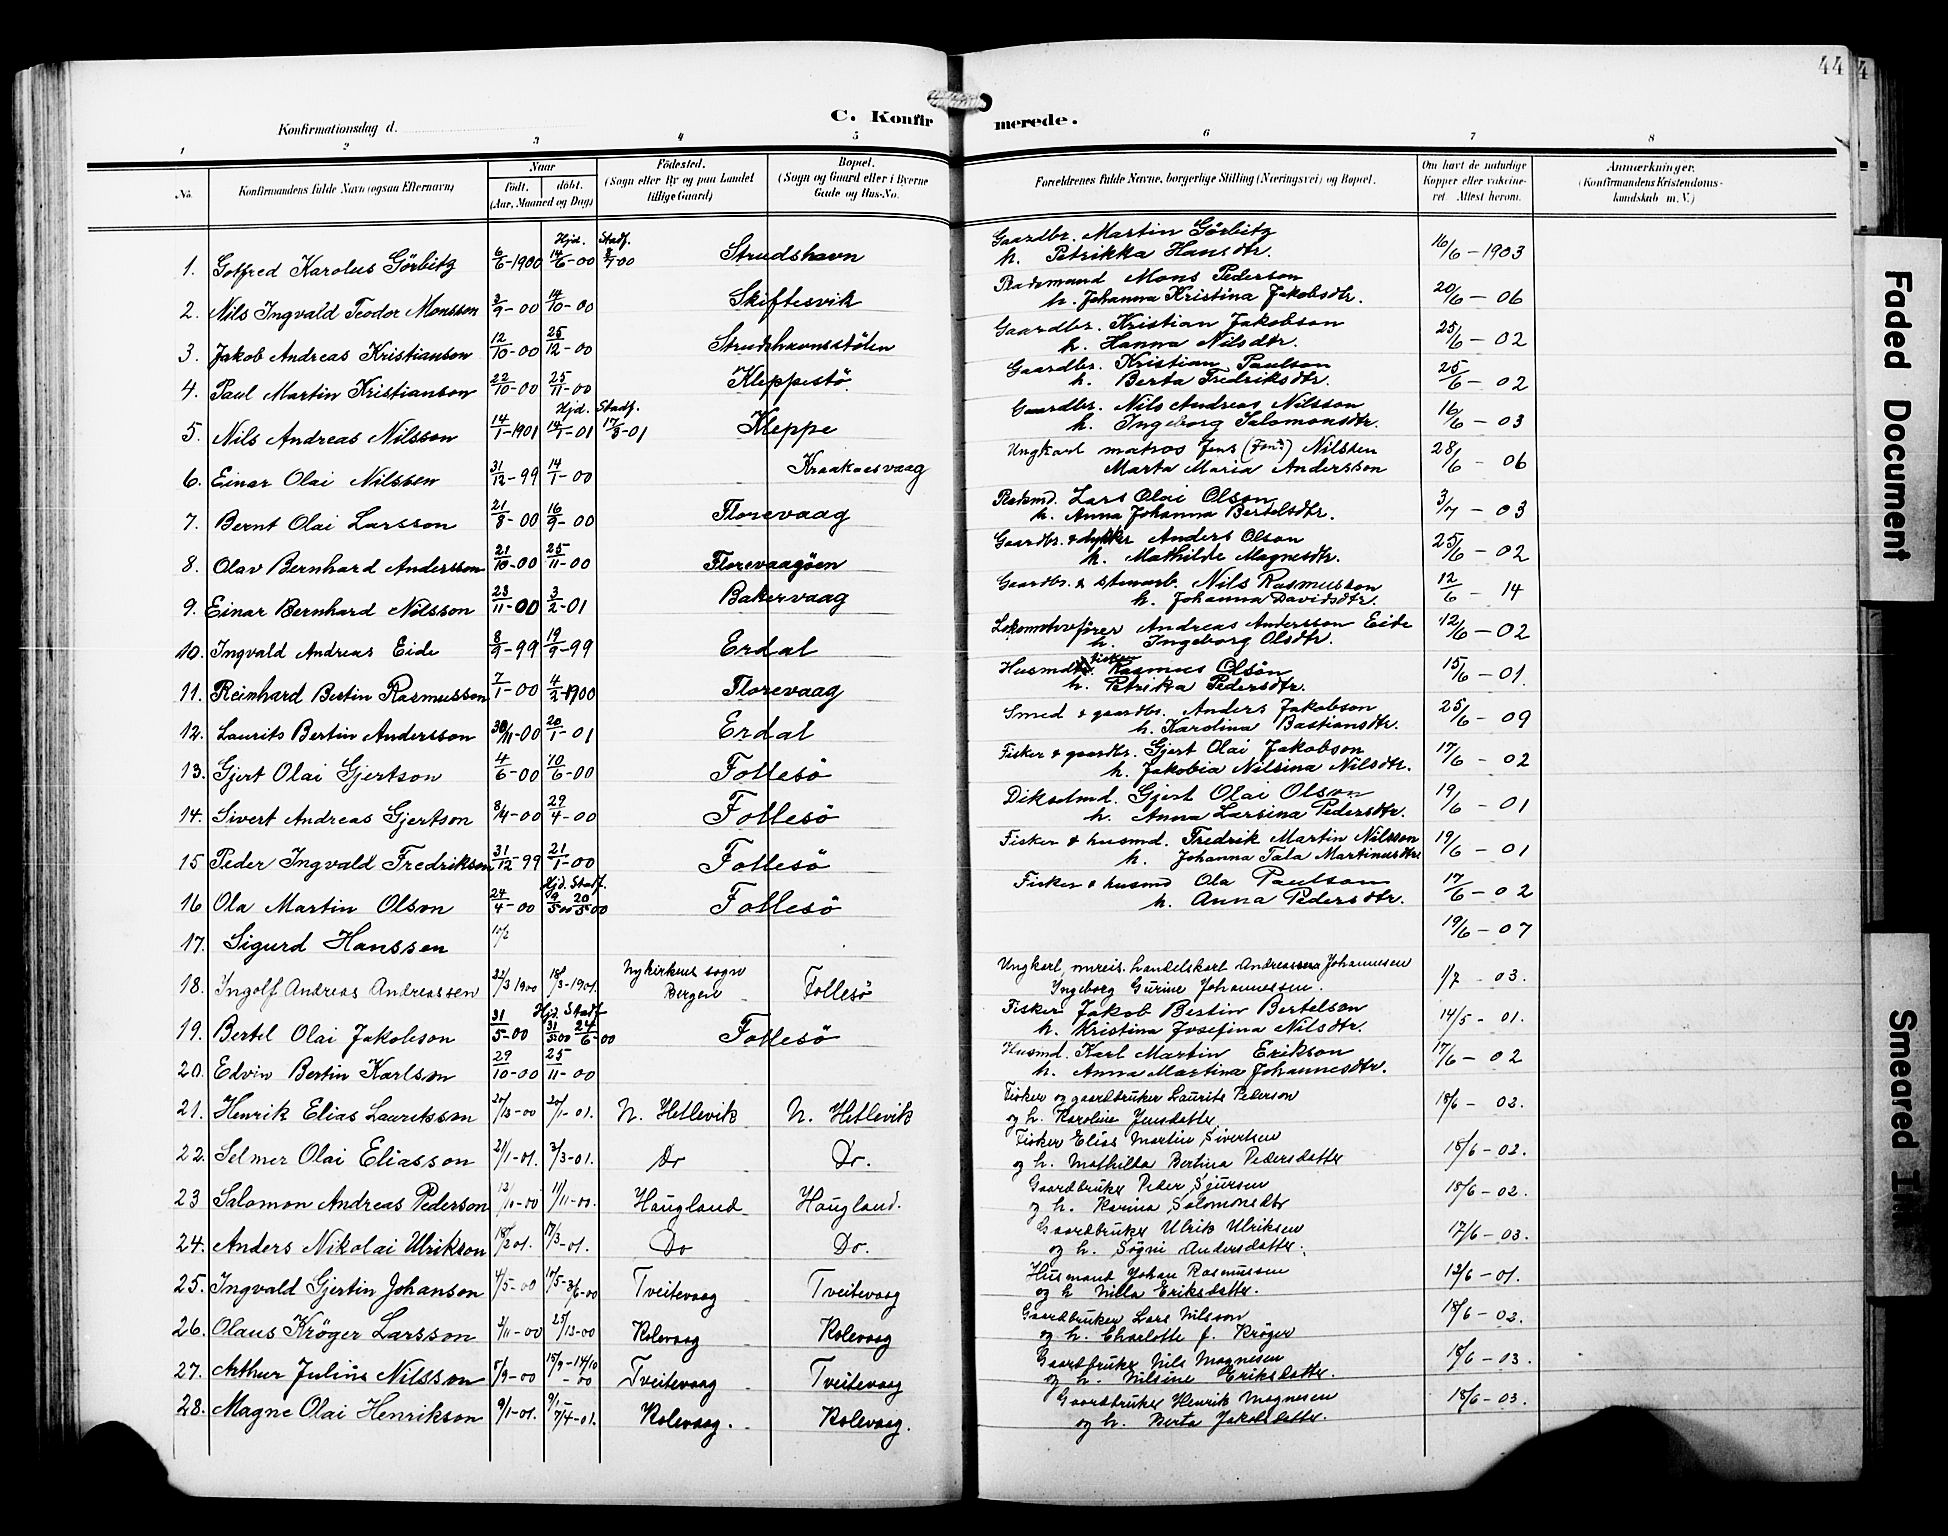 44
4
C. Konfirmerede.
Konfirmationsdag d.
1 2 3 4 5 6 7 8
No.
Konfirmandens fulde Navn (ogsaa Efternavn)
Naar
født. døbt.
(Aar, Maaned og Dag)
Fødested.
(Sogn eller By og paa Landet
tillige Gaard)
Bopæl.
(Sogn og Gaard eller i Byerne
Gade og Hus-No.
Forældrenes fulde Navne, borgerlige Stilling (Næringsvei) og Bopæl.
Om havt de naturlige
Kopper eller vakcine-
ret. Attest herom.
Anmærkninger.
(Konfirmandens Kristendoms-
kundskab m. V.)
Hjd. Stadf.
1. Gotfred Karolus Görbitz 6/6-1900 14/6-00 8/7-00 Strudshavn Gaardbr. Martin Görbitz 16/6-1903
h. Petrikka Hansdtr.
2. Nils Ingvald Teodor Monsson 3/9-00 14/10-00 Skiftesvik Mons Pederson 20/6-06
h. Johanna Kristina Jakobsdtr.
3. Jakob Andreas Kristianson 12/10-00 25/12-00 Strudshavnsstölen Gaardbr. Kristian Jakobson 25/6-02
h. Hanna Nilsdtr.
4. Paul Martin Kristianson 22/10-00 25/11-00 Kleppestö Gaardbr. Kristian Paulson 25/6-02
h. Berta Fredriksdtr.
Hjd. Stadf.
5. Nils Andreas Nilsson 14/1-1901 14/1-01 17/3-01 Kleppe Gaardbr. Nils Andreas Nilsson 16/6-03
h. Ingeborg Salomonsdtr.
6. Einar Olai Nilssen 31/12-99 14/1-00 Kraakaesvaag Ungkarl matros Jens Nilssen 28/6-06
Marta Maria Andersson
7. Bernt Olai Larsson 21/8-00 16/9-00 Florevaag Lars Olai Olson 3/7-03
h. Anna Johanna Bertelsdtr.
8. Olav Bernhard Andersson 21/10-00 25/11-00 Florevaagöen Gaardbr. & Anders Olson 25/6-02
h. Mathilde Magnesdtr.
9. Einar Bernhard Nilsson 23/11-00 3/2-01 Bakervaag Gaardbr. & stenarb. Nils Rasmusson 12/6-14
h. Johanna Davidsdtr.
10. Ingvald Andreas Eide 8/9-99 19/9-99 Erdal Lokomotivfører Andreas Andersson Eide 12/6-02
h. Ingeborg Olsdtr.
11. Reinhard Bertin Rasmusson 7/1-00 4/2-1900 Florevaag Husmd. fisker Rasmus Olsön 15/6-01.
h. Petrika Pedersdtr.
12. Laurits Bertin Andersson 30/11-00 20/1-01 Erdal Smed & gaardbr. Anders Jakobson 25/6-09
h. Karolina Bastiansdtr.
13. Gjert Olai Gjertson 4/6-00 10/6-00 Follesö Fisker & gaardbr. Gjert Olai Jakobson 17/6-02
h. Jakobia Nilsina Nilsdtr.
14. Sivert Andreas Gjertson 8/4-00 29/4-00 Follesö Gjert Olai Olson 19/6-01
h. Anna Larsina Pedersdtr.
15 Peder Ingvald Fredrikson 31/12-99 21/1-00 Follesö Fisker & husmd. Fredrik Martin Nilsson 19/6-01
h. Johanna Tala Martinusdtr
Hjd. Stadf.
16 Ola Martin Olson 24/4-00 9/5-00 20/5-00 Follesö Fisker & husmd Ola Paulson 17/6-02
h. Anna Pedersdtr.
17. Sigurd Hanssen 10/2 19/6-07
18. Ingolf Andreas Andreassen 22/3 1900 18/3-1901 Nykirkens sogn Follesö Ungkarl, omreis. handelskarl Andreas Johannesen 1/7-03.
Bergen Ingeborg Gurine Johannessen.
Hjd. Stadf.
19. Bertel Olai Jakobson 31/5-00 31/5-00 24/6-00 Follesö Fisker Jakob Bertin Bertelson 14/5-01.
h. Kristina Josefina Nilsdtr.
20. Edvin Bertin Karlson 29/10-00 25/11-00 Husmd. Karl Martin Erikson 17/6-02
h. Anna Martina Johannesdtr.
21. Henrik Elias Lauritsson 20/1-01. N. Hetlevik N. Hetlevik Fisker og gaardbruker Laurits Pederson 18/6-02.
og h. Karoline Jensdatter
22. Selmer Olai Eliasson 21/1-01. 3/3-01. Do Do. Fisker Elias Martin Sivertsen 18/6-02.
og h. Mathilda Bertina Pedersdatter
23 Salomon Andreas Pederson 12/10-00 11/11-00. Haugland Haugland. Gaardbruker Peder Sjursen 18/6-02.
og h. Karina Salomonsdtr
24. Anders Nikolai Ulrikson 18/2 01. 17/3-01. Do Do. Gaardbruker Ulrik Ulriksen 17/6-03.
og h. Søgni Andersdatter.
25. Ingvald Gjertin Johanson 4/5-00 10/5-3/6-00 Tveitevaag Tveitevaag Husmand Johan Rasmussen 12/6-01.
og h Nilla Eriksdatter.
26. Olaus Krøger Larsson 2/11-00 25/12-00 Rolevaag Rolevaag Gaardbruker Lars Nilsson 18/6-02.
og h. Charlotte f. Krøger
27. Arthur Julius Nilsson 8/9-00 15/9-14/10-00 Tveitevaag Tveitevaag Gaardbruker Nils Magnesen 18/6-03.
og h. Nilsine Eriksdatter.
28. Magne Olai Henrikson 9/1-01. 9/1-7/4-01. Rolevaag. Rolevaag. Gaardbruker Henrik Magnesen 18/6-03.
og h. Berta Jakobsdatter.
Faded Document
Smeared Ink